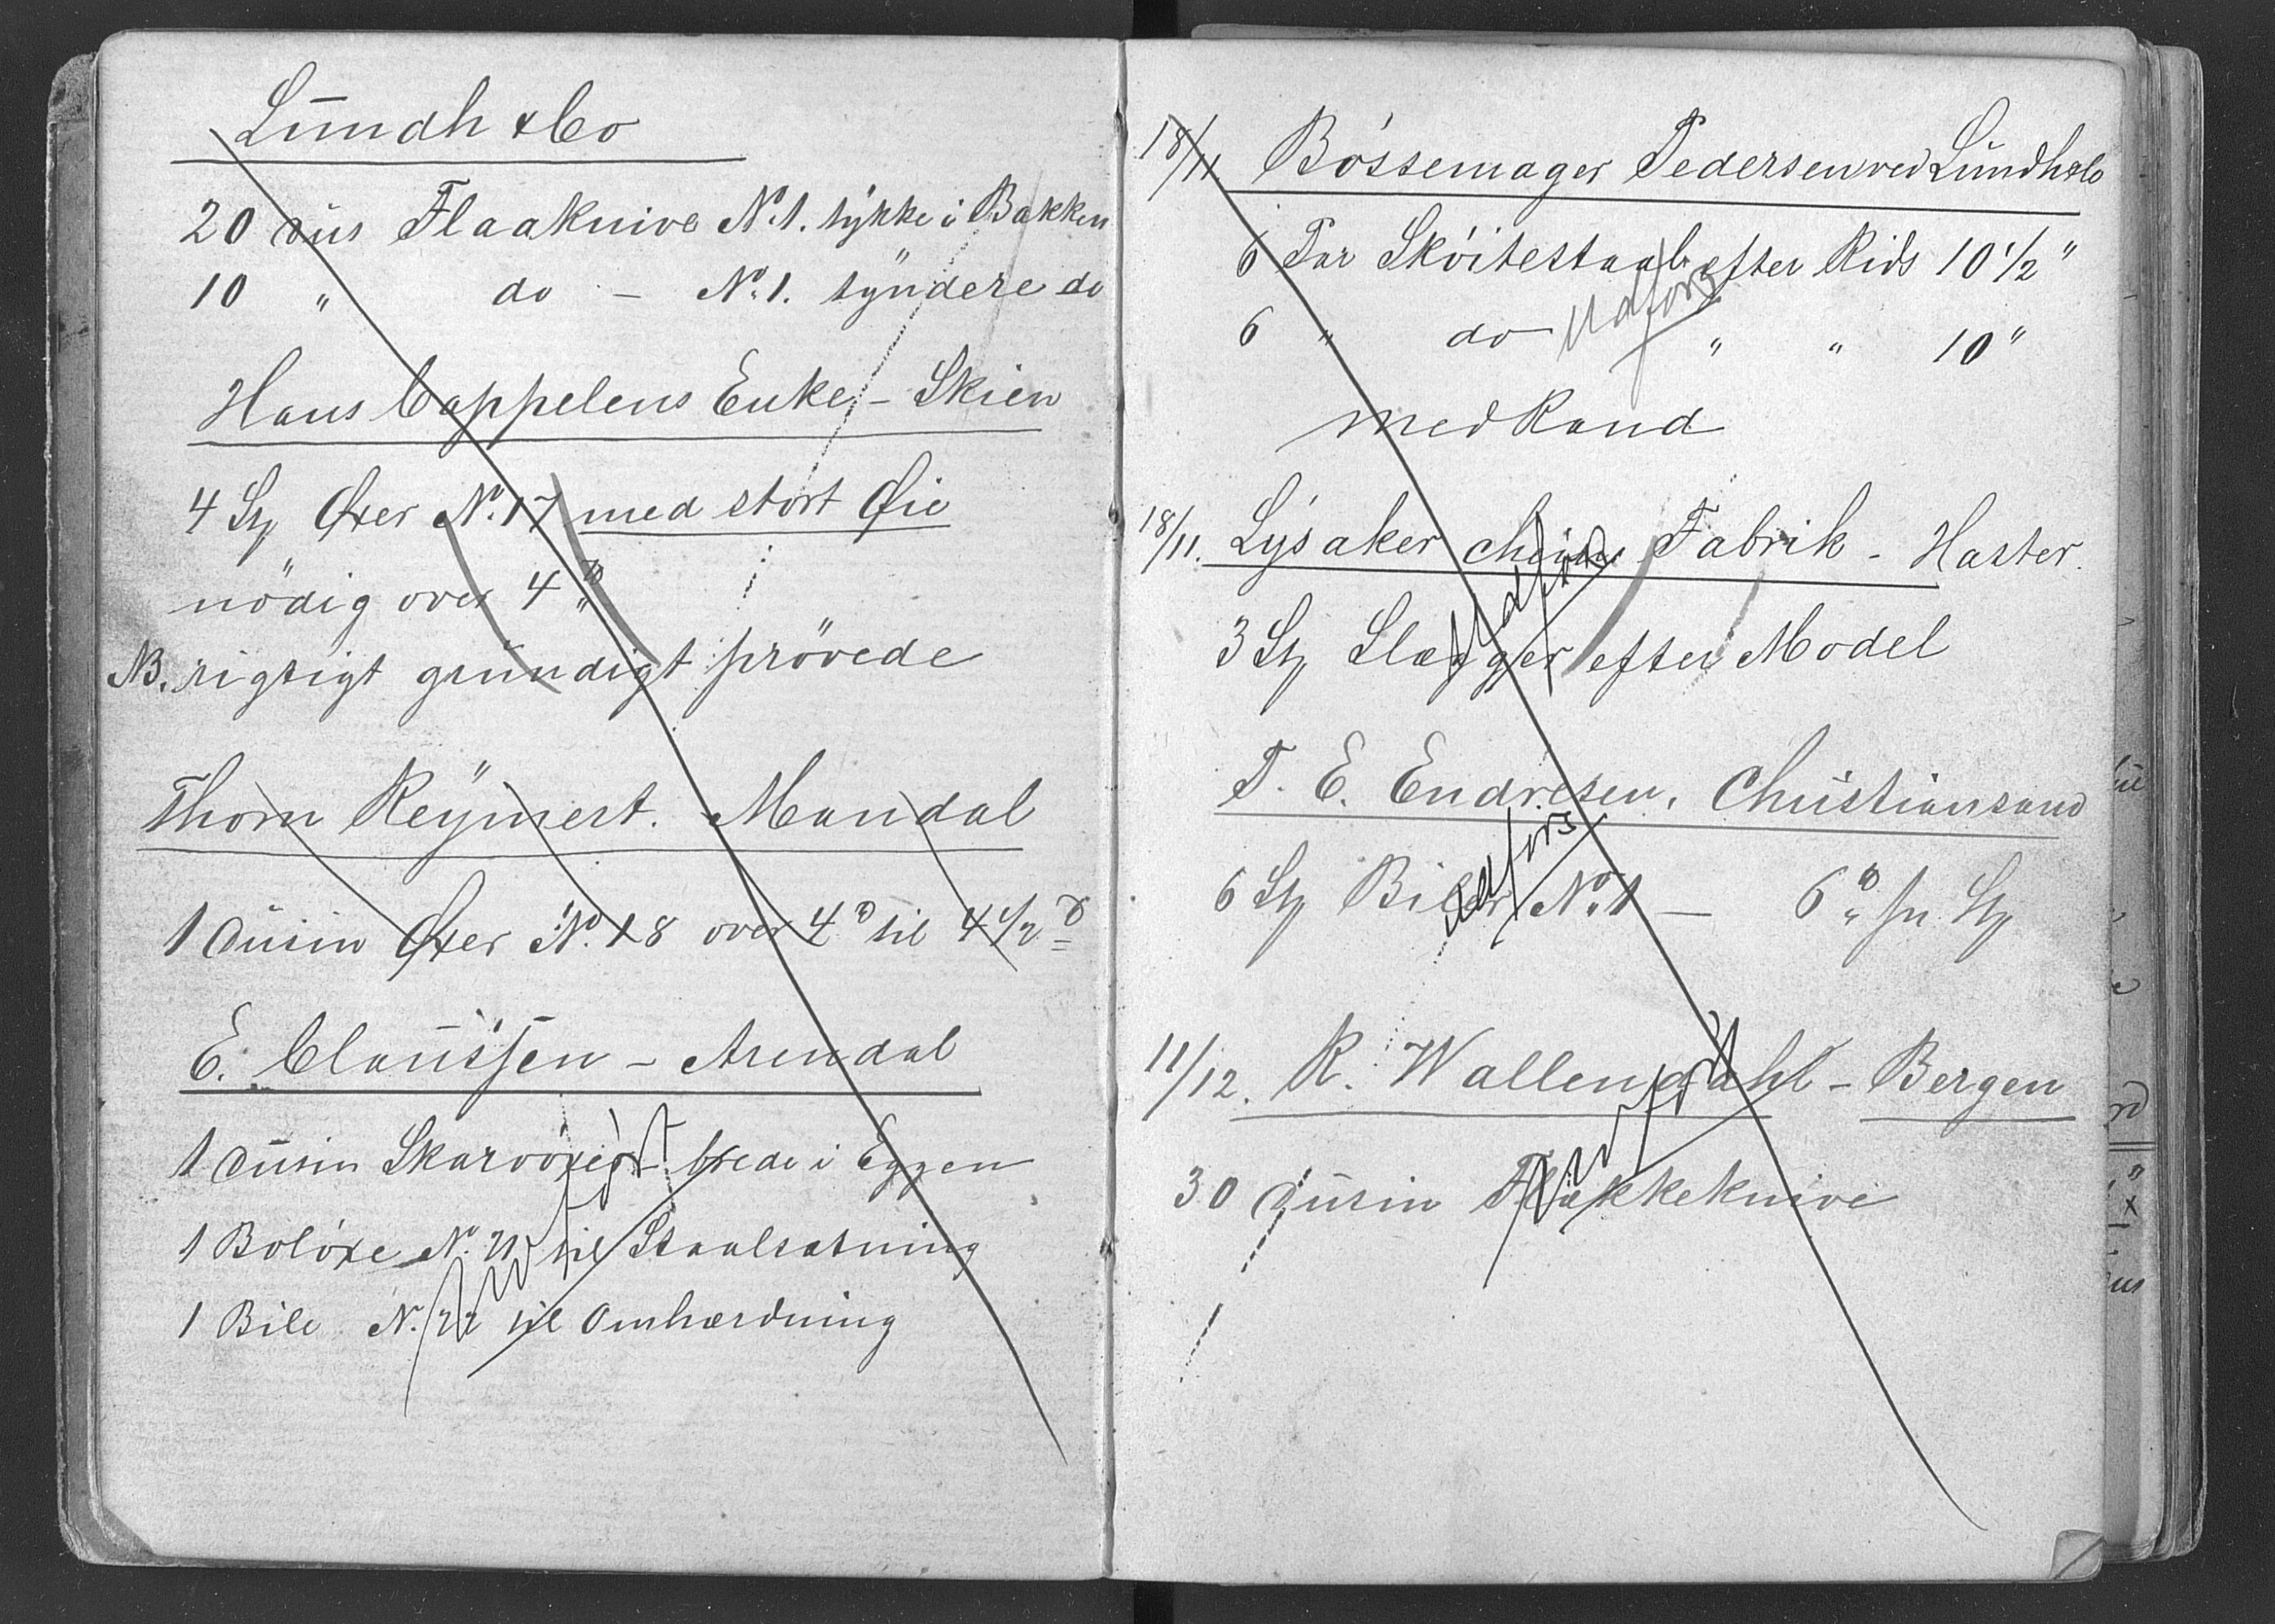 Lundh & Co
20 dus Flaaknive No. 1. tykke i Bakken
10 " do – No. 1. tyndere do
Hans Cappelens Enke – Skien
4 St Øxer No. 17 med stort Øie
nödig over 4 ℔
NB. rigtigt grundigt prövede
Thorn Reymert. Mandal
1 Dusin Øxer No. 18 over 4 ℔ til 4 1/2 ℔
E. Claussen – Arendal
1 Dusin Skarvöxer brede i Eggen
1 Bolöxe No. 21 til Staalsætning
1 Bile N. 22 til Omhærdning
Udført
18/11. Bössemager Pedersen ved Lundh & Co
6 Par Sköitestaal efter Rids 10 1/2"
6 " do " " 10"
Udförs
med Rand
18/11. Lysaker chem Fabrik – Haster.
Udförs
3 St Slægger efter Model
T. E. Endresen, Christiansand
Udförs
6 St Biler No. 1 – 6 ℔ pr St
11/12. R. Wallendahl – Bergen
Udfört
30 Dusin Flækkeknive